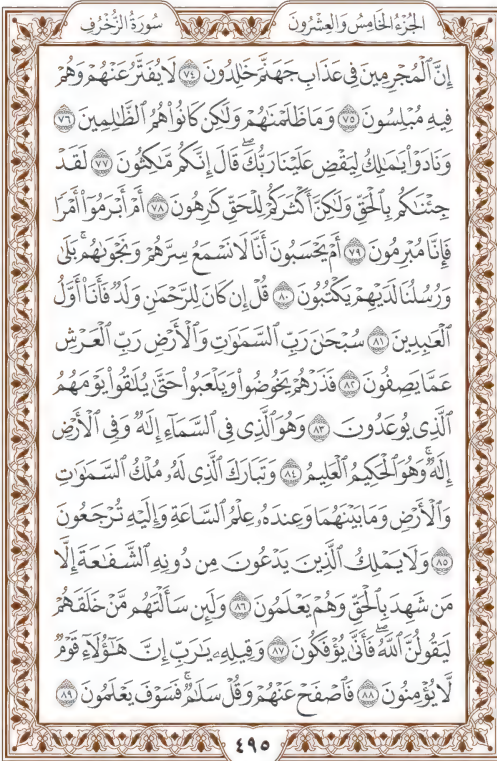 الجُزْءُ الخَامِسُ وَالعِشْرُونَ سُورَةُ الزُّخْرُفِ
إِنَّ ٱلْمُجْرِمِينَ فِي عَذَابِ جَهَنَّمَ خَٰلِدُونَ ٧٤ لَا يُفَتَّرُ عَنْهُمْ وَهُمْ
فِيهِ مُبْلِسُونَ ٧٥ وَمَا ظَلَمْنَٰهُمْ وَلَٰكِن كَانُوا۟ هُمُ ٱلظَّٰلِمِينَ ٧٦
وَنَادَوْا۟ يَٰمَٰلِكُ لِيَقْضِ عَلَيْنَا رَبُّكَ ۖ قَالَ إِنَّكُم مَّٰكِثُونَ ٧٧ لَقَدْ
جِئْنَٰكُم بِٱلْحَقِّ وَلَٰكِنَّ أَكْثَرَكُمْ لِلْحَقِّ كَٰرِهُونَ ٧٨ أَمْ أَبْرَمُوٓا۟ أَمْرًا
فَإِنَّا مُبْرِمُونَ ٧٩ أَمْ يَحْسَبُونَ أَنَّا لَا نَسْمَعُ سِرَّهُمْ وَنَجْوَىٰهُم ۚ بَلَىٰ
وَرُسُلُنَا لَدَيْهِمْ يَكْتُبُونَ ٨٠ قُلْ إِن كَانَ لِلرَّحْمَٰنِ وَلَدٌ فَأَنَا۠ أَوَّلُ
ٱلْعَٰبِدِينَ ٨١ سُبْحَٰنَ رَبِّ ٱلسَّمَٰوَٰتِ وَٱلْأَرْضِ رَبِّ ٱلْعَرْشِ
عَمَّا يَصِفُونَ ٨٢ فَذَرْهُمْ يَخُوضُوا۟ وَيَلْعَبُوا۟ حَتَّىٰ يُلَٰقُوا۟ يَوْمَهُمُ
ٱلَّذِي يُوعَدُونَ ٨٣ وَهُوَ ٱلَّذِي فِي ٱلسَّمَآءِ إِلَٰهٌ وَفِي ٱلْأَرْضِ
إِلَٰهٌ ۚ وَهُوَ ٱلْحَكِيمُ ٱلْعَلِيمُ ٨٤ وَتَبَارَكَ ٱلَّذِي لَهُۥ مُلْكُ ٱلسَّمَٰوَٰتِ
وَٱلْأَرْضِ وَمَا بَيْنَهُمَا وَعِندَهُۥ عِلْمُ ٱلسَّاعَةِ وَإِلَيْهِ تُرْجَعُونَ
٨٥ وَلَا يَمْلِكُ ٱلَّذِينَ يَدْعُونَ مِن دُونِهِ ٱلشَّفَٰعَةَ إِلَّا
مَن شَهِدَ بِٱلْحَقِّ وَهُمْ يَعْلَمُونَ ٨٦ وَلَئِن سَأَلْتَهُم مَّنْ خَلَقَهُمْ
لَيَقُولُنَّ ٱللَّهُ ۖ فَأَنَّىٰ يُؤْفَكُونَ ٨٧ وَقِيلِهِۦ يَٰرَبِّ إِنَّ هَٰٓؤُلَآءِ قَوْمٌ
لَّا يُؤْمِنُونَ ٨٨ فَٱصْفَحْ عَنْهُمْ وَقُلْ سَلَٰمٌ ۚ فَسَوْفَ يَعْلَمُونَ ٨٩
٤٩٥